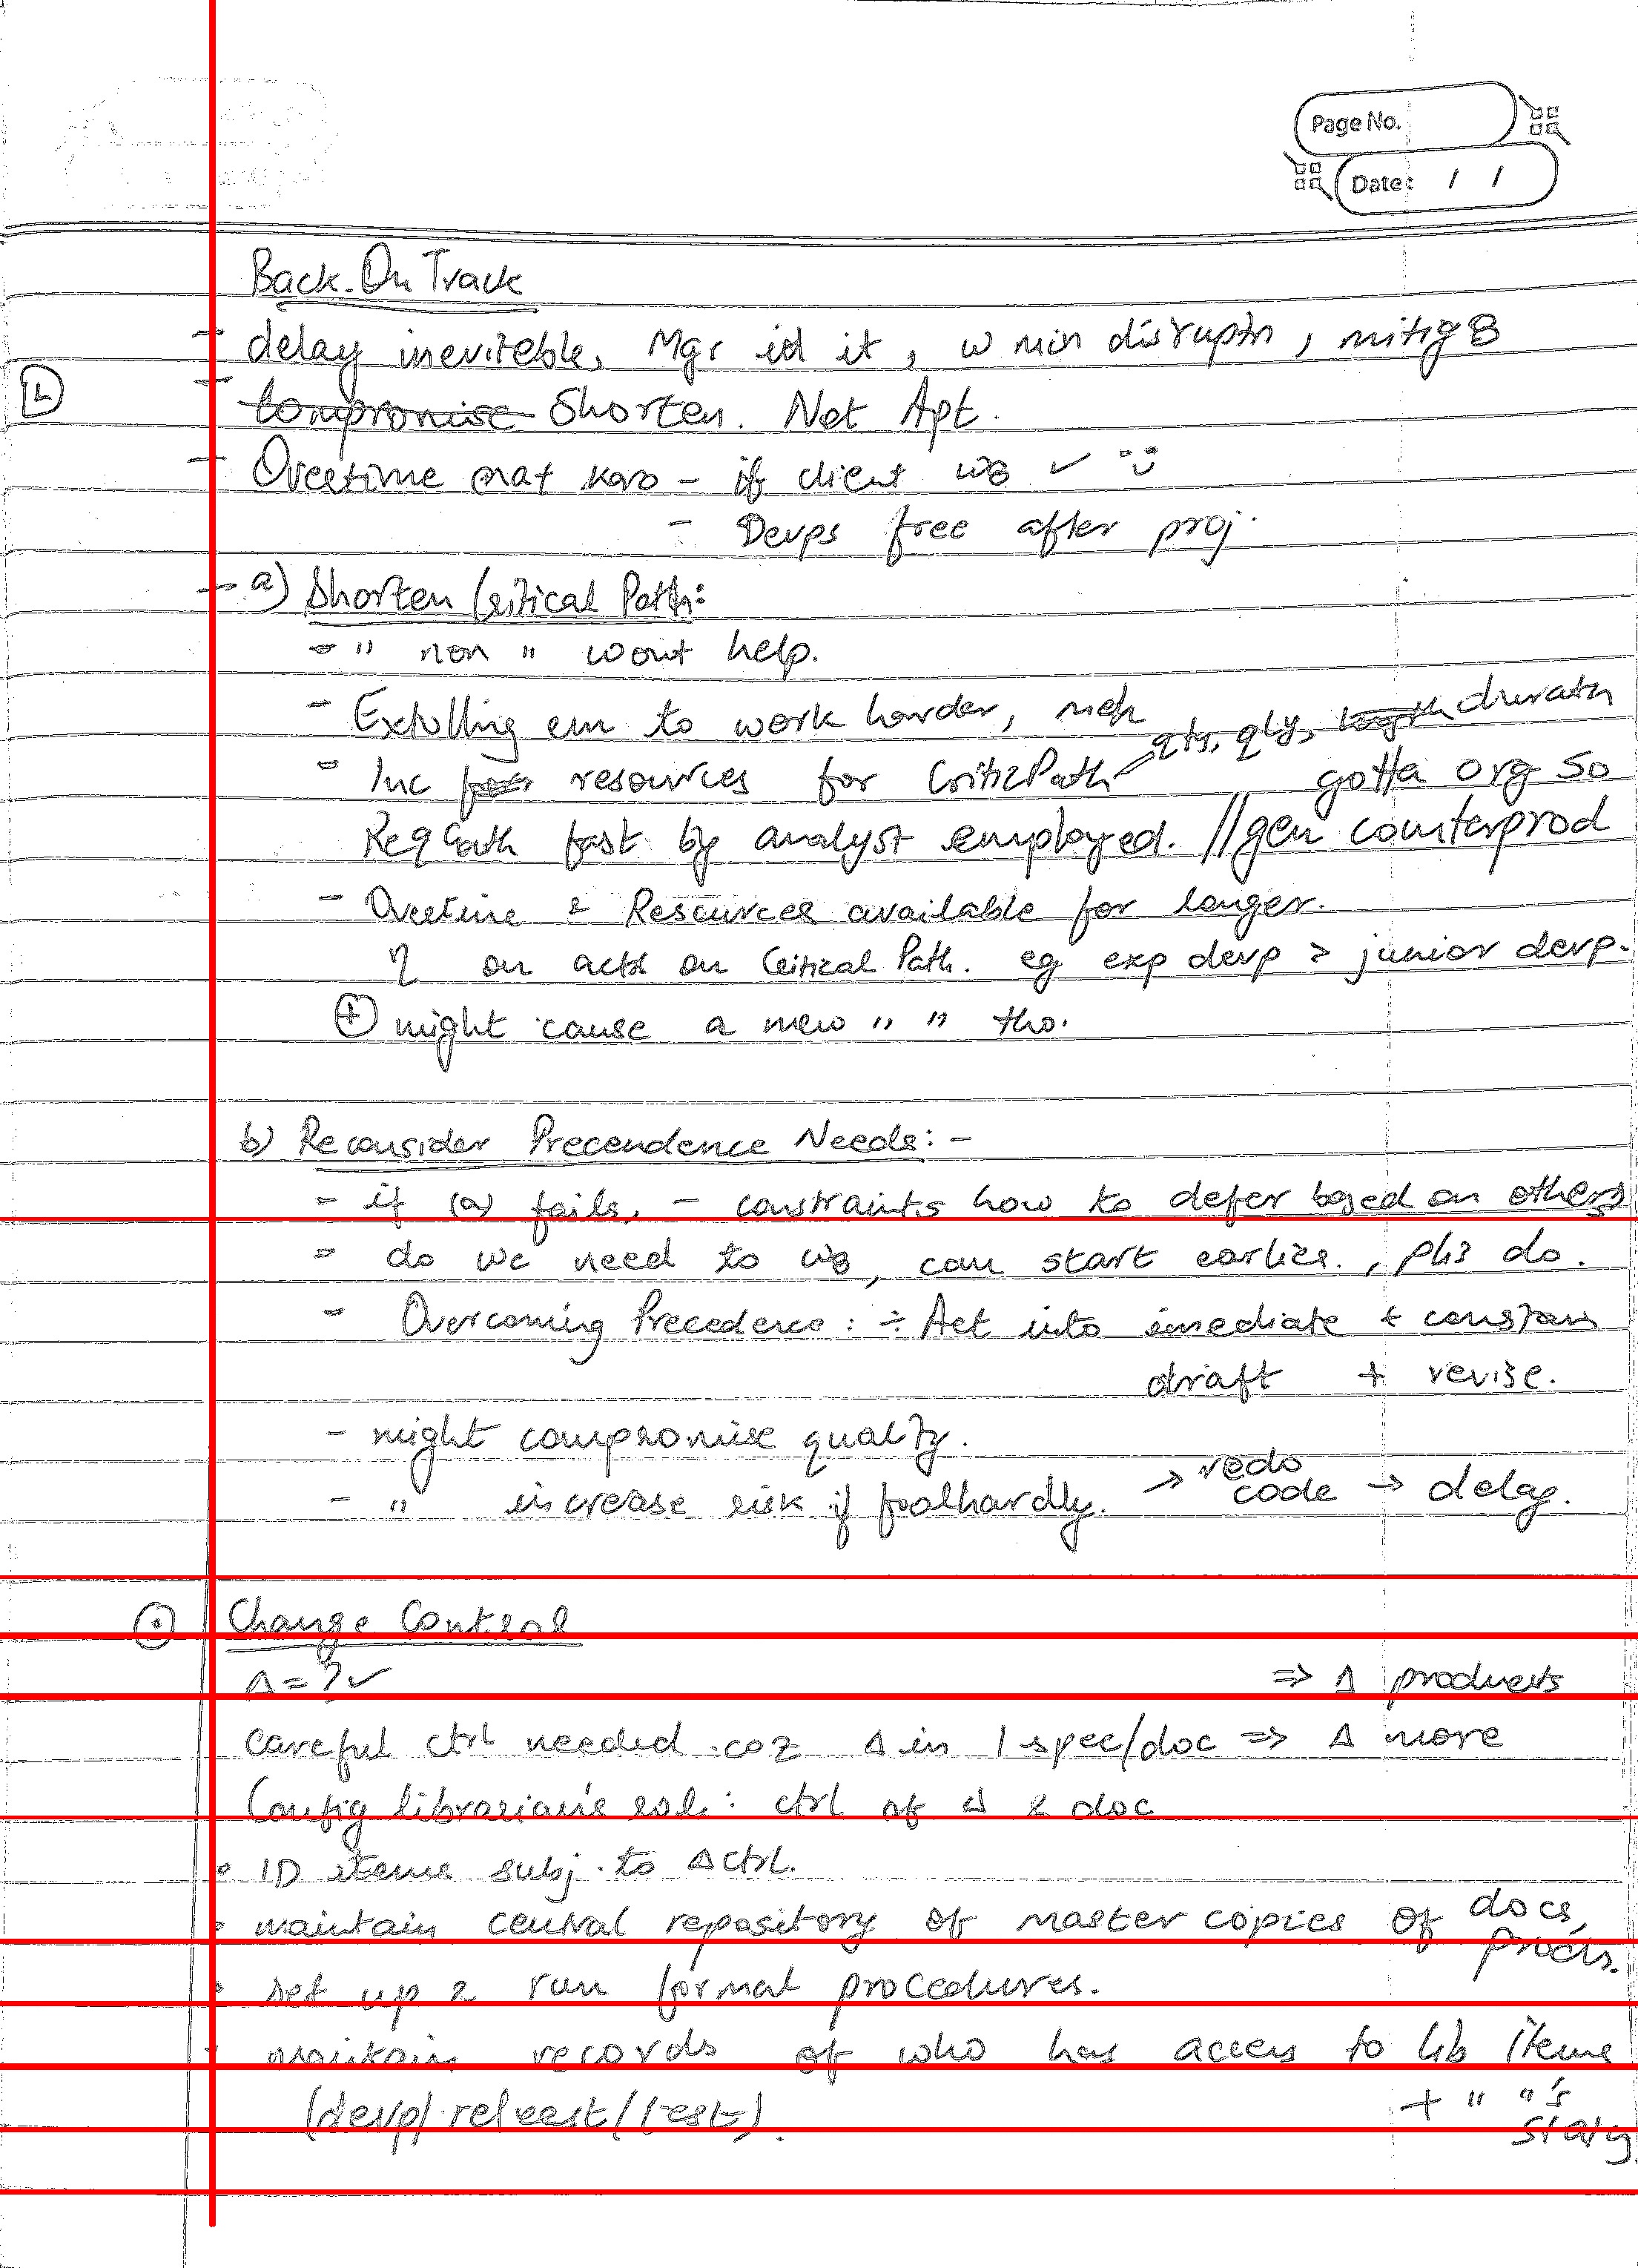 Page No.
Date: / /
Back On Track
- delay inevitable, Mgr id it, w min disruptn, mitig8
L
- Compromise Shorten. Not Apt.
- Overtime mat karo - if client w8 ✓
- Devps free after proj.
- a) Shorten Critical Path:
- " non " wont help.
- Extolling em to work harder, meh
qty, qly, length duratn
- Inc for resources for CriticPath gotta org so
Req Gath fast by analyst employed. // gen counterprod
- Overtime & Resources available for longer.
η on acts on Critical Path. eg exp devp > junior devp.
+ might cause a new " " tho.
b) Reconsider Precendence Needs: -
- if (a) fails, - constraints how to defer based on others
- do we need to w8, can start earlier., plz do.
- Overcoming Precedence: ÷ Act into imediate +
draft + revise.
- might compromise quality.
- " increase risk if foolhardly. → redo code → delay.
Change Control
Δ = ? ✓ ⇒ Δ products
careful ctrl needed coz Δ in 1 spec/doc ⇒ Δ more
Config librarian's role: ctrl of Δ & doc
• ID items subj. to Δ ctrl.
• maintain central repository of master copies of docs, prods.
• set up & run formal procedures.
• maintain records of who has access to lib items
(devp/ /test). + " "'s